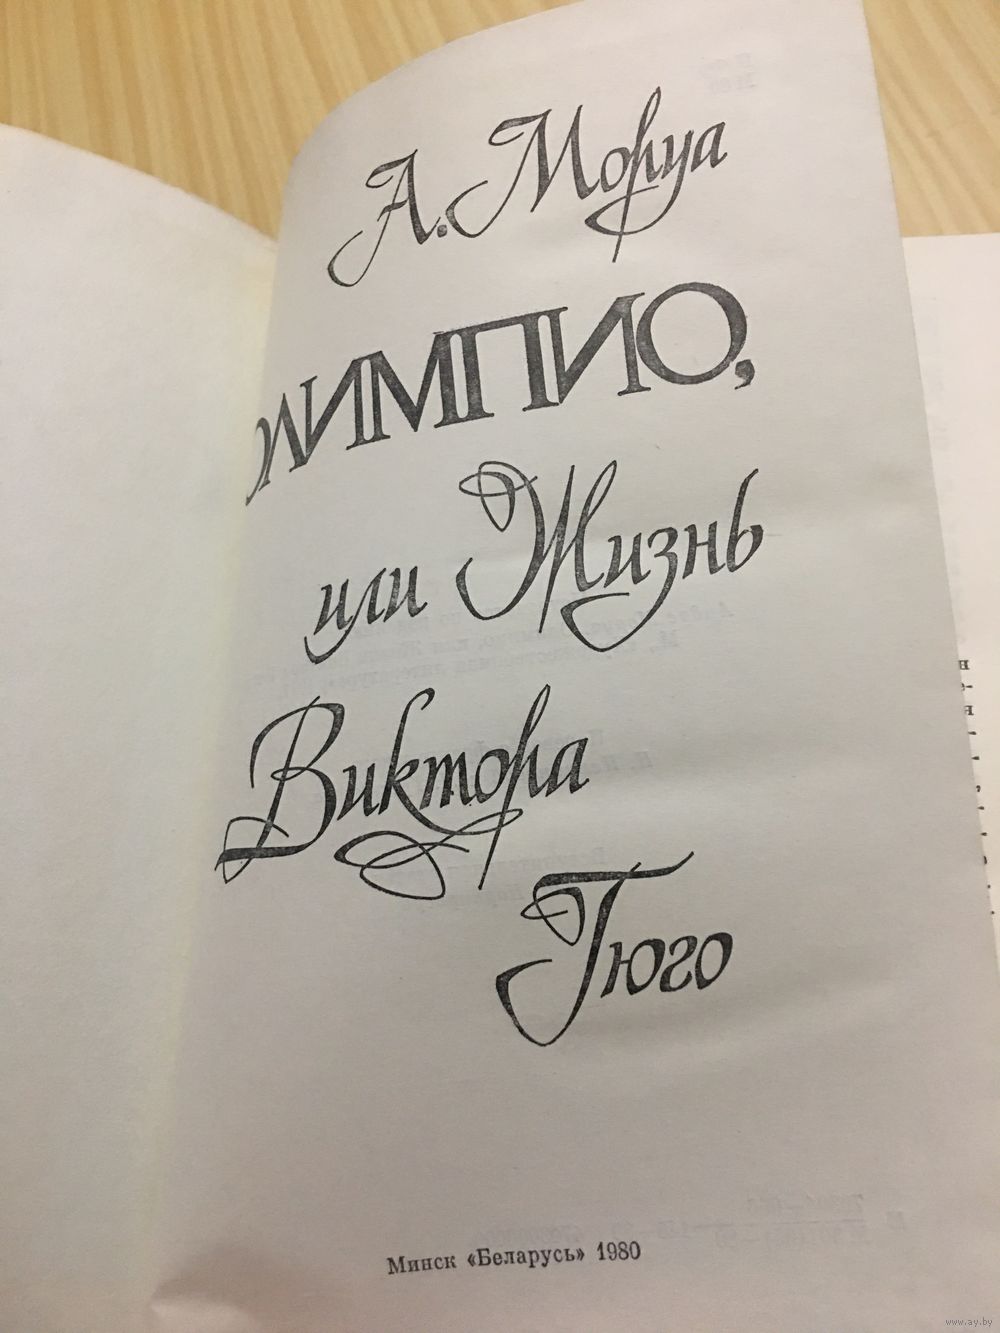 А. Моруа
ОЛИМПИО,
или Жизнь
Виктора
Гюго
Минск «Беларусь» 1980
www.ay.by